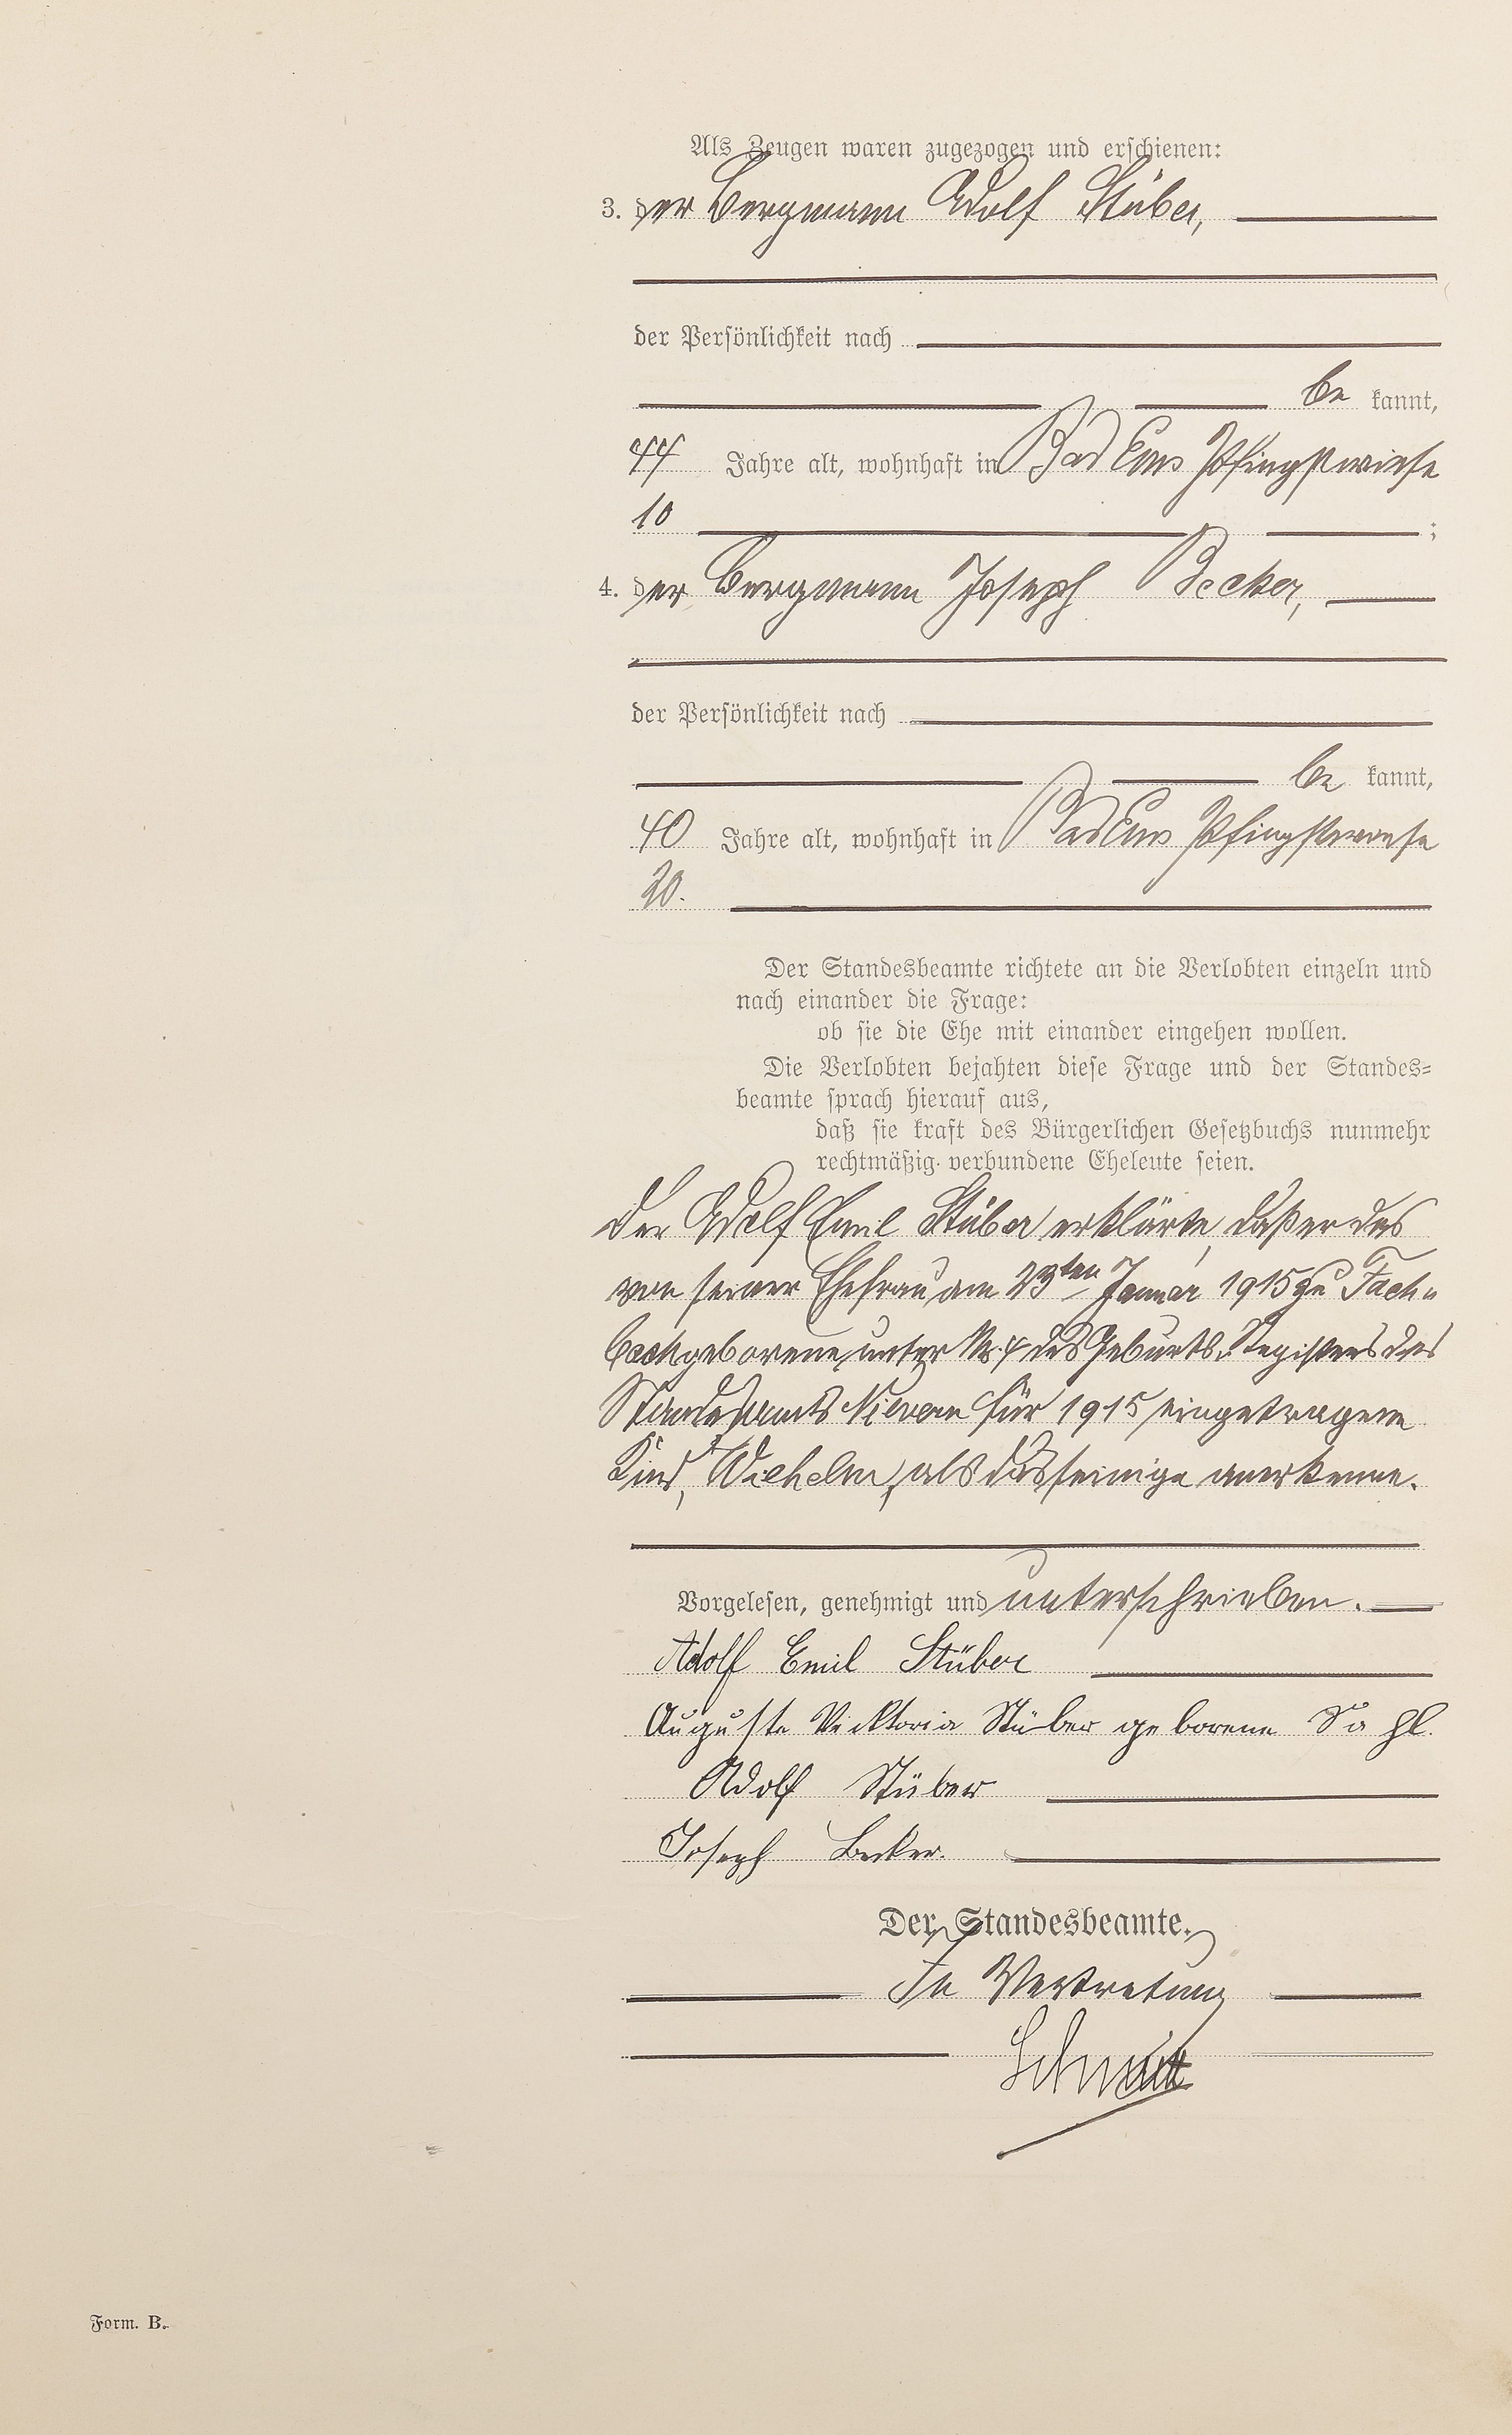 Als Zeugen waren zugezogen und erschienen:
3. der Bergmann Adolf Stüber,
der Persönlichkeit nach
be kannt,
44 Jahre alt, wohnhaft in Bad Ems Pfingstwiese
10 ;
4. der Bergmann Joseph Becker,
der Persönlichkeit nach
be kannt,
40 Jahre alt, wohnhaft in Bad Ems Pfingstwiese
20.
Der Standesbeamte richtete an die Verlobten einzeln und
nach einander die Frage:
ob sie die Ehe mit einander eingehen wollen.
Die Verlobten bejahten diese Frage und der Standes-
beamte sprach hierauf aus,
daß sie kraft des Bürgerlichen Gesetzbuchs nunmehr
rechtmäßig verbundene Eheleute seien.
Der Adolf Emil Stüber erklärte, daß er das
von seiner Ehefrau am 23ten Januar 1915 zu Fach-
bach geborene, unter Nr. 4 des Geburts-Registers des
Standesamts Nievern für 1915 eingetragene
Kind, Wilhelm, als das seinige anerkenne.
Vorgelesen, genehmigt und unterschrieben.
Adolf Emil Stüber
Auguste Viktoria Stüber geborene Sahl.
Adolf Stüber
Joseph Becker.
Der Standesbeamte.
In Vertretung
Schmitt
Form. B.